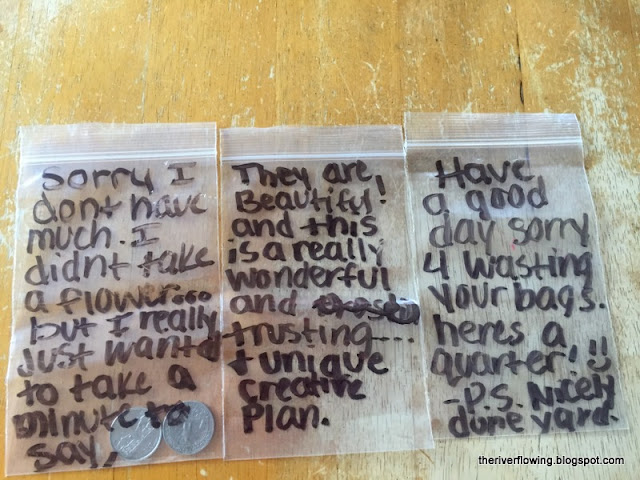 Sorry I
dont have
much. I
didnt take
a flower...
but I really
Just wantd
to take a
minute to
say,
They are
Beautiful!
and this
is a really
wonderful
and
trusting....
+ unique
creative
Plan.
Have
a good
day sorry
4 wasting
your bags.
heres a
quarter!!
-P.S. Nicely
done yard.
theriverflowing.blogspot.com